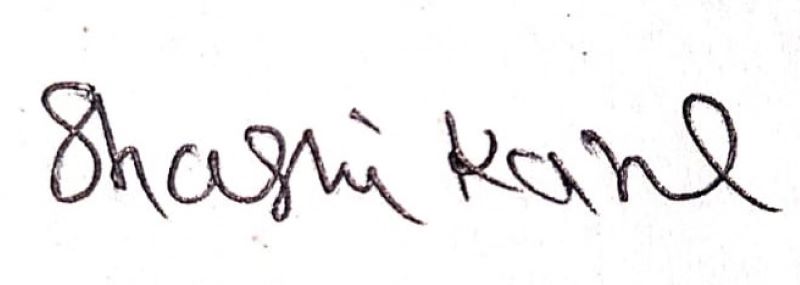 Shashi Kant